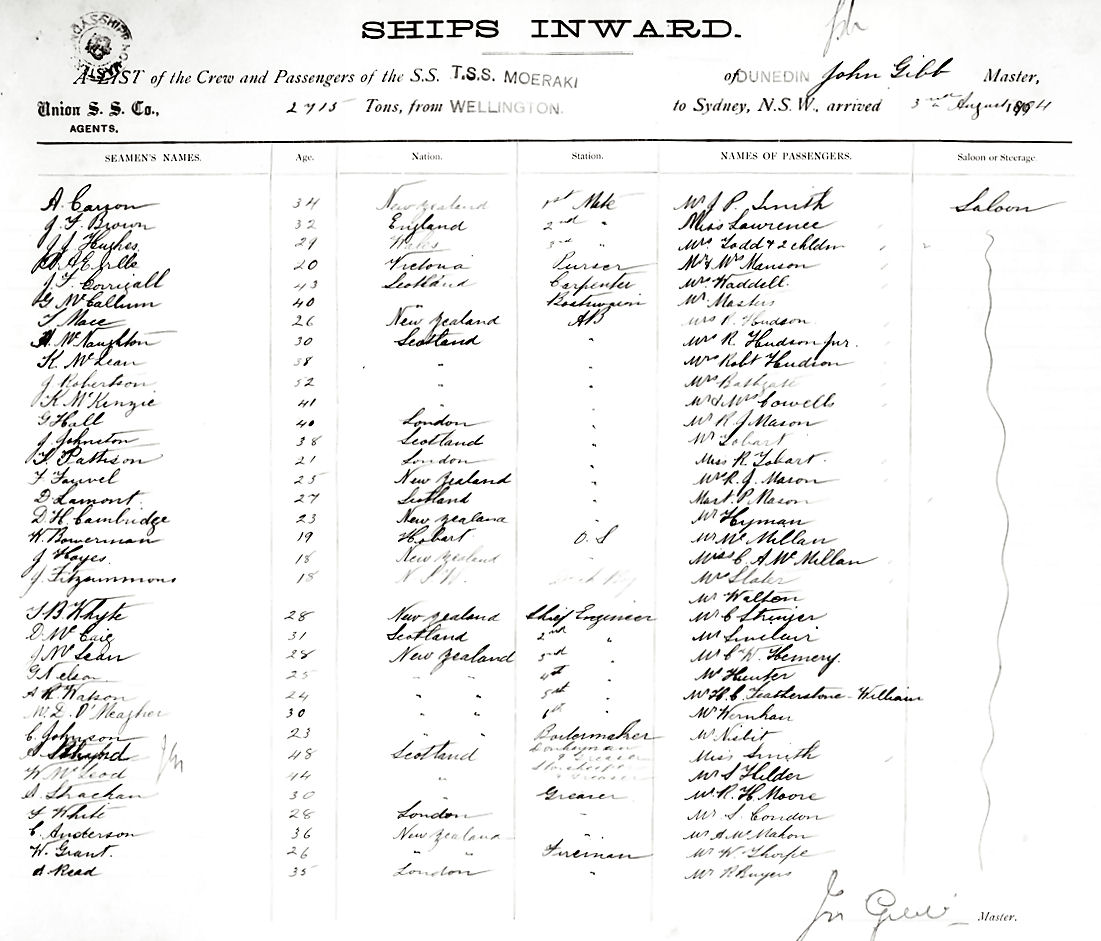 SHIPS INWARD.
A LIST of the Crew and Passengers of the S.S. T.S.S. MOERAKI of DUNEDIN John Gibb Master,
Union S. S. Co., 2715 Tons, from WELLINGTON. to Sydney, N.S.W., arrived 3 August
AGENTS.
SEAMEN'S NAMES. Age. Nation. Station. NAMES OF PASSENGERS. Saloon or Steerage
A. Carson 34 New Zealand 1st Mate Mr J P. Smith Saloon
J. F. Brown 32 England 2nd " Miss Lawrence
J J Hughes 29 Wales 3rd " Mrs Todd & 2 chldrn
20 Victoria Purser Mr & Mrs Manson
J. T. Corrigall 43 Scotland Carpenter Mrs Waddell
G McCallum 40 " Boatswain Mr Masters
T Mace 26 New Zealand AB Mrs R. Hudson
A. McNaughton 30 Scotland " Mrs R. Hudson jnr.
K. McLean 38 " " Mrs Robt Hudson
J Robertson 52 " " Mrs Bathgate
K McKenzie 41 " " Mr & Mrs Cowells
G Hall 40 London " Mr R J Mason
J. Johnston 38 Scotland " Mr Tobart
T. Pattison 21 London " Miss R. Tobart
F. Fauvel 25 New Zealand " Mrs R. J. Mason
D. Lamont 27 Scotland " Mast. P. Mason
D. H. Cambridge 23 New Zealand " Mr Hyman
W. Bowerman 19 Hobart O. S Mr McMillan
J Hayes 18 New Zealand " Miss C. A McMillan
J. Fitzsimmons 18 N S W. Mrs Slater
Mr Walton
J B Whyte 28 New Zealand Chief Engineer Mr C Stringer
D. McCaig 31 Scotland 2nd " Mr Sinclair
J McLean 28 New Zealand 3rd " Mr C. W. Hemery
G Nelson 25 " " 4th Mr Hunter
A R Watson 24 " " 5th " Mr H. C. Featherstone-William
W. D. O'Meagher 30 " " 6th " Mr Wernham
C. Johnson 23 " " Boilermaker Mr Nisbit
A 48 Scotland Donkeyman & Greaser Miss Smith
W McLeod 44 " Storekeeper & Greaser Mr S Hilder
A Strachan 30 " Greaser Mr R. H. Moore
F White 28 London " Mr S. Condon
C. Anderson 36 New Zealand " Mr A McMahon
W. Grant. 26 " " Fireman Mr W. Thorpe
A Read 35 London " Mr R Buyers
Jn Gibb Master.